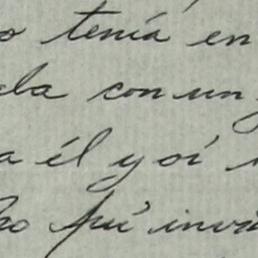 o tenía en
con un
a él y oí
fuí invi